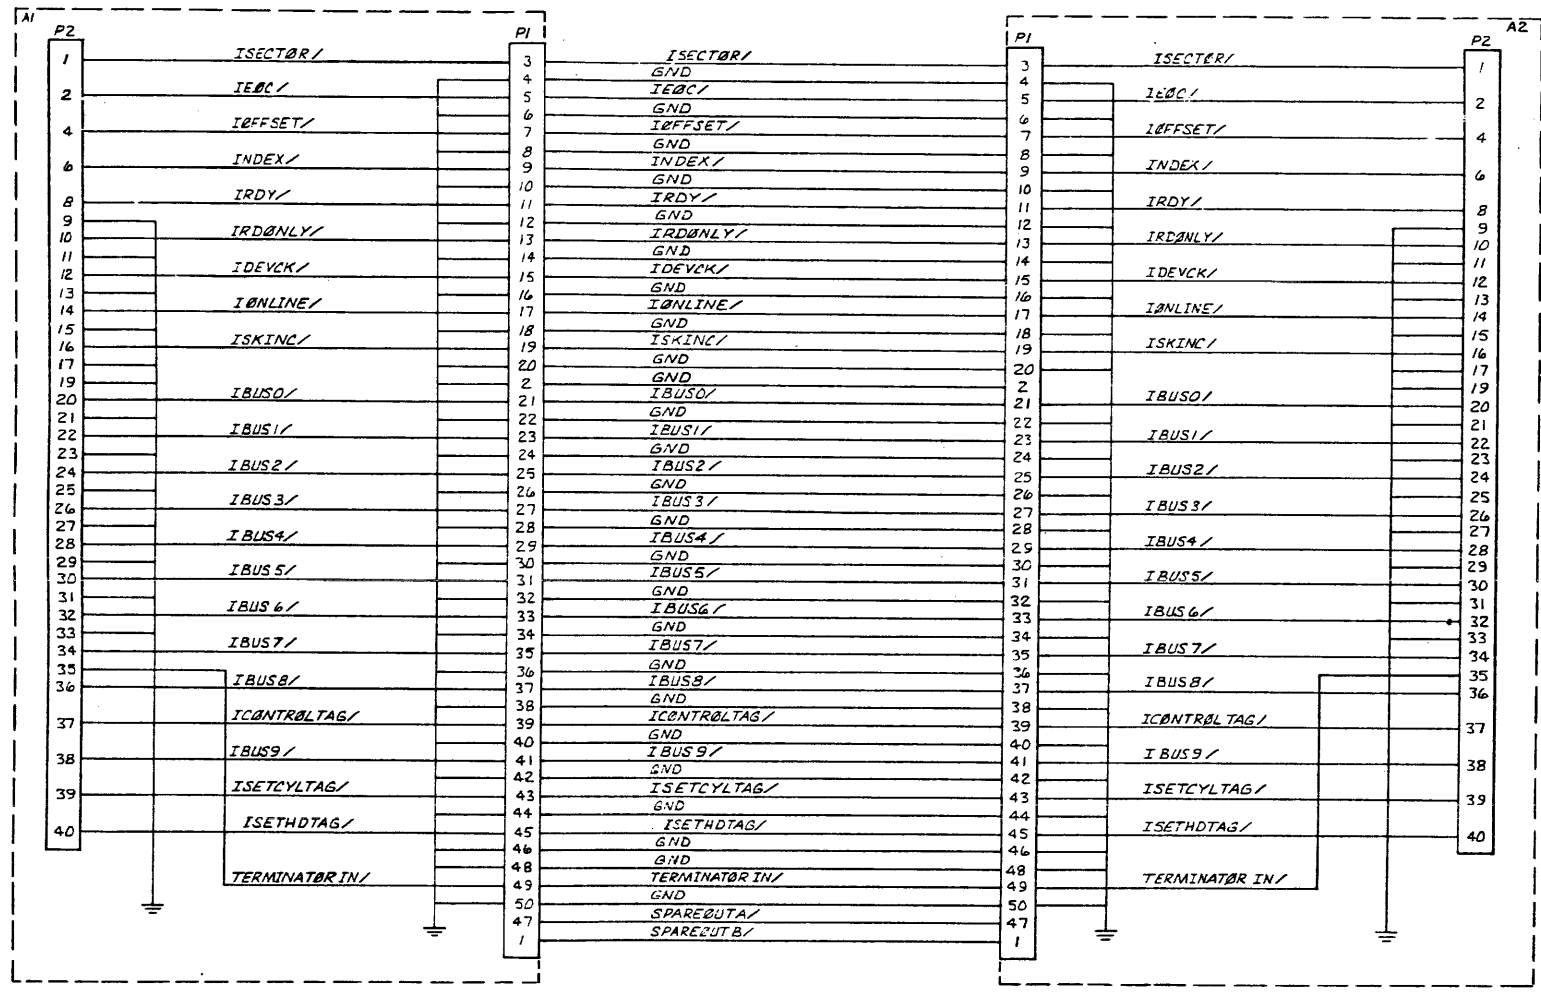 A1
P2
1
2
4
6
8
9
10
11
12
13
14
15
16
17
19
20
21
22
23
24
25
26
27
28
29
30
31
32
33
34
35
36
37
38
39
40
ISECTØR/
IEØC/
IØFFSET/
INDEX/
IRDY/
IRDØNLY/
IDEVCK/
IØNLINE/
ISKINC/
IBUS0/
IBUS1/
IBUS2/
IBUS3/
IBUS4/
IBUS5/
IBUS6/
IBUS7/
IBUS8/
ICØNTRØLTAG/
IBUS9/
ISETCYLTAG/
ISETHDTAG/
TERMINATØR IN/
P1
3
4
5
6
7
8
9
10
11
12
13
14
15
16
17
18
19
20
2
21
22
23
24
25
26
27
28
29
30
31
32
33
34
35
36
37
38
39
40
41
42
43
44
45
46
48
49
50
47
1
ISECTØR/
GND
IEØC/
GND
IØFFSET/
GND
INDEX/
GND
IRDY/
GND
IRDØNLY/
GND
IDEVCK/
GND
IØNLINE/
GND
ISKINC/
GND
GND
IBUS0/
GND
IBUS1/
GND
IBUS2/
GND
IBUS3/
GND
IBUS4/
GND
IBUS5/
GND
IBUS6/
GND
IBUS7/
GND
IBUS8/
GND
ICØNTRØLTAG/
GND
IBUS9/
GND
ISETCYLTAG/
GND
ISETHDTAG/
GND
GND
TERMINATØR IN/
GND
SPAREØUTA/
SPAREØUTB/
P1
3
4
5
6
7
8
9
10
11
12
13
14
15
16
17
18
19
20
2
21
22
23
24
25
26
27
28
29
30
31
32
33
34
35
36
37
38
39
40
41
42
43
44
45
46
48
49
50
47
1
ISECTØR/
IEØC/
IØFFSET/
INDEX/
IRDY/
IRDØNLY/
IDEVCK/
IØNLINE/
ISKINC/
IBUS0/
IBUS1/
IBUS2/
IBUS3/
IBUS4/
IBUS5/
IBUS6/
IBUS7/
IBUS8/
ICØNTRØL TAG/
IBUS9/
ISETCYLTAG/
ISETHDTAG/
TERMINATØR IN/
A2
P2
1
2
4
6
8
9
10
11
12
13
14
15
16
17
19
20
21
22
23
24
25
26
27
28
29
30
31
32
33
34
35
36
37
38
39
40